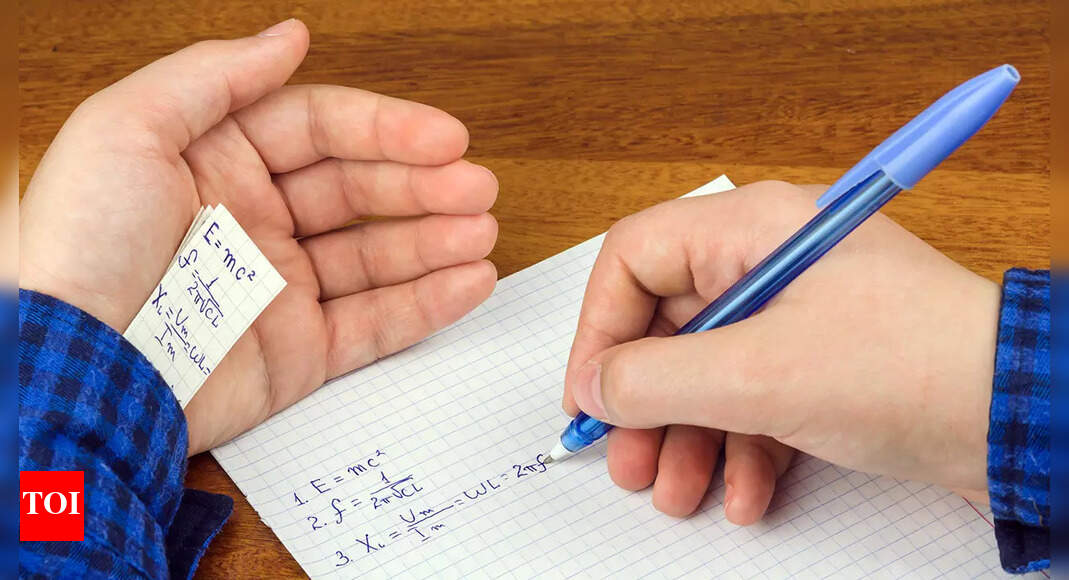 E = mc²
f = 1/2π√CL
X_L = U_m/I_m = WL =
1. E = mc²
2. f = 1/2π√CL
3. X_L = U_m/I_m = WL = 2πf
TOI